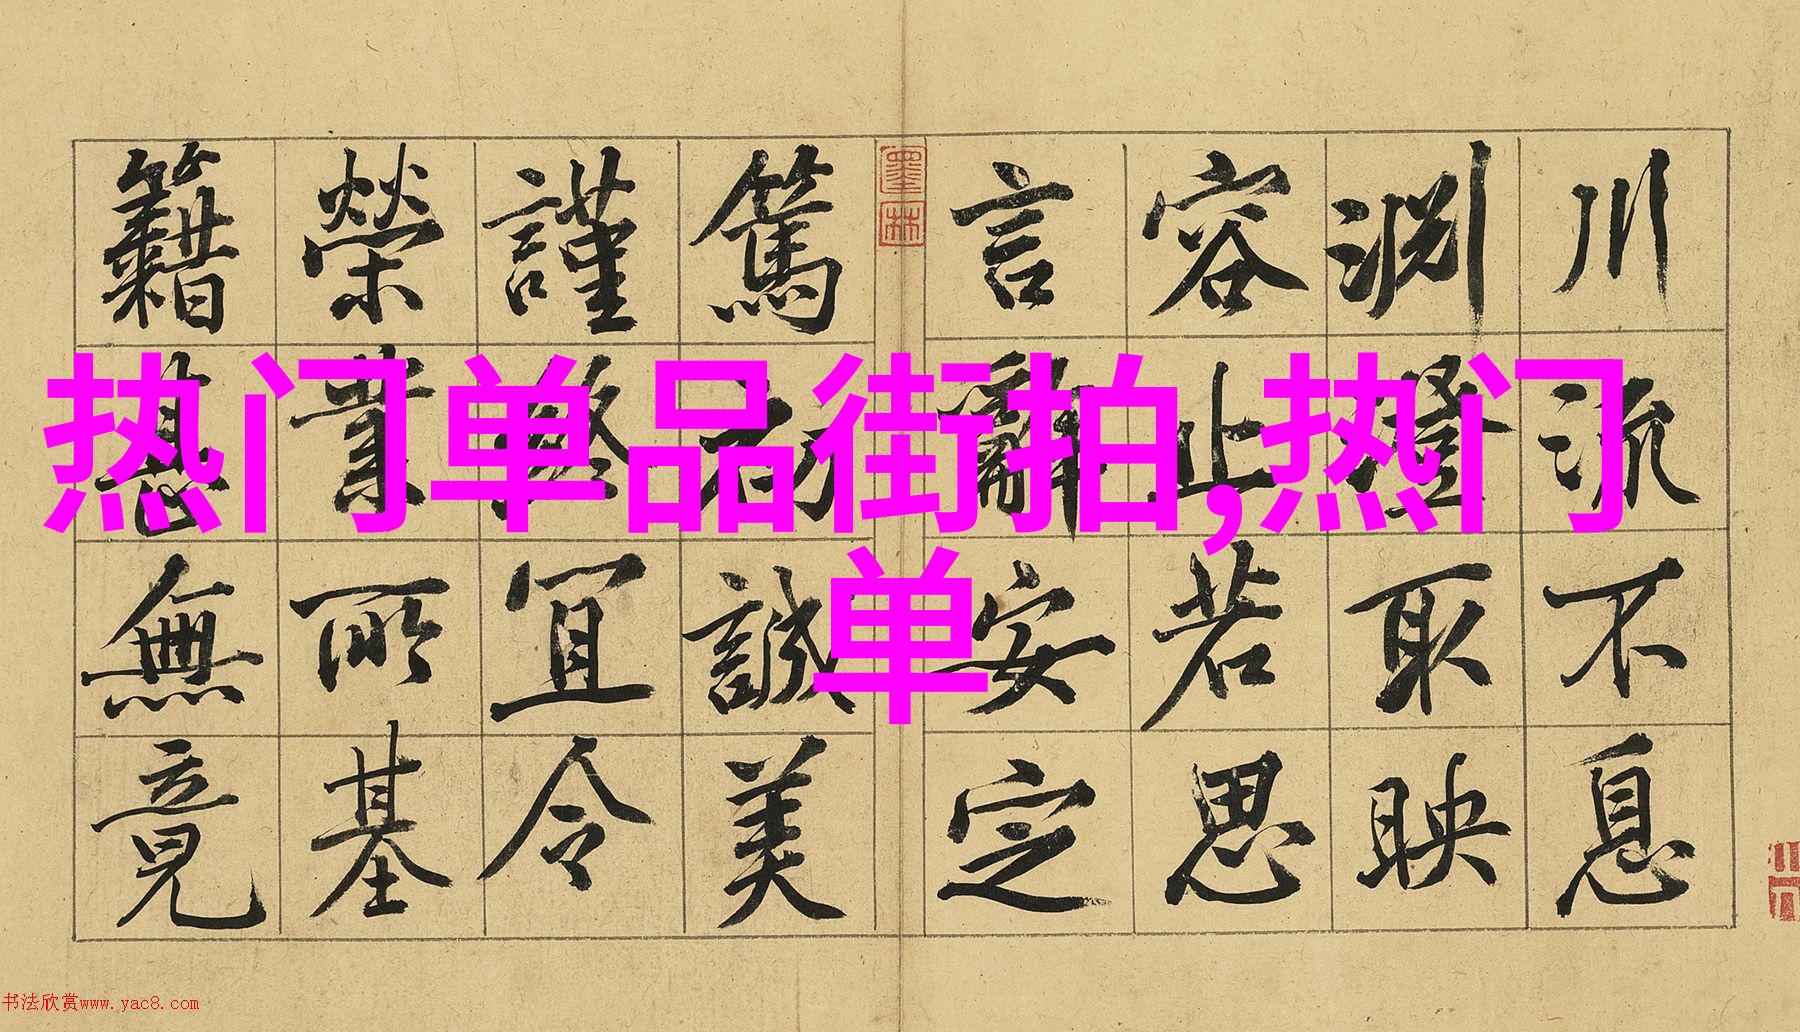 热门单品街拍,热门
单
川流不息
淵澄取映
容止若思
言辭安定
墨林
篤初誠美
謹終宜令
榮業所基
籍甚無竟
书法欣赏www.yac8.com